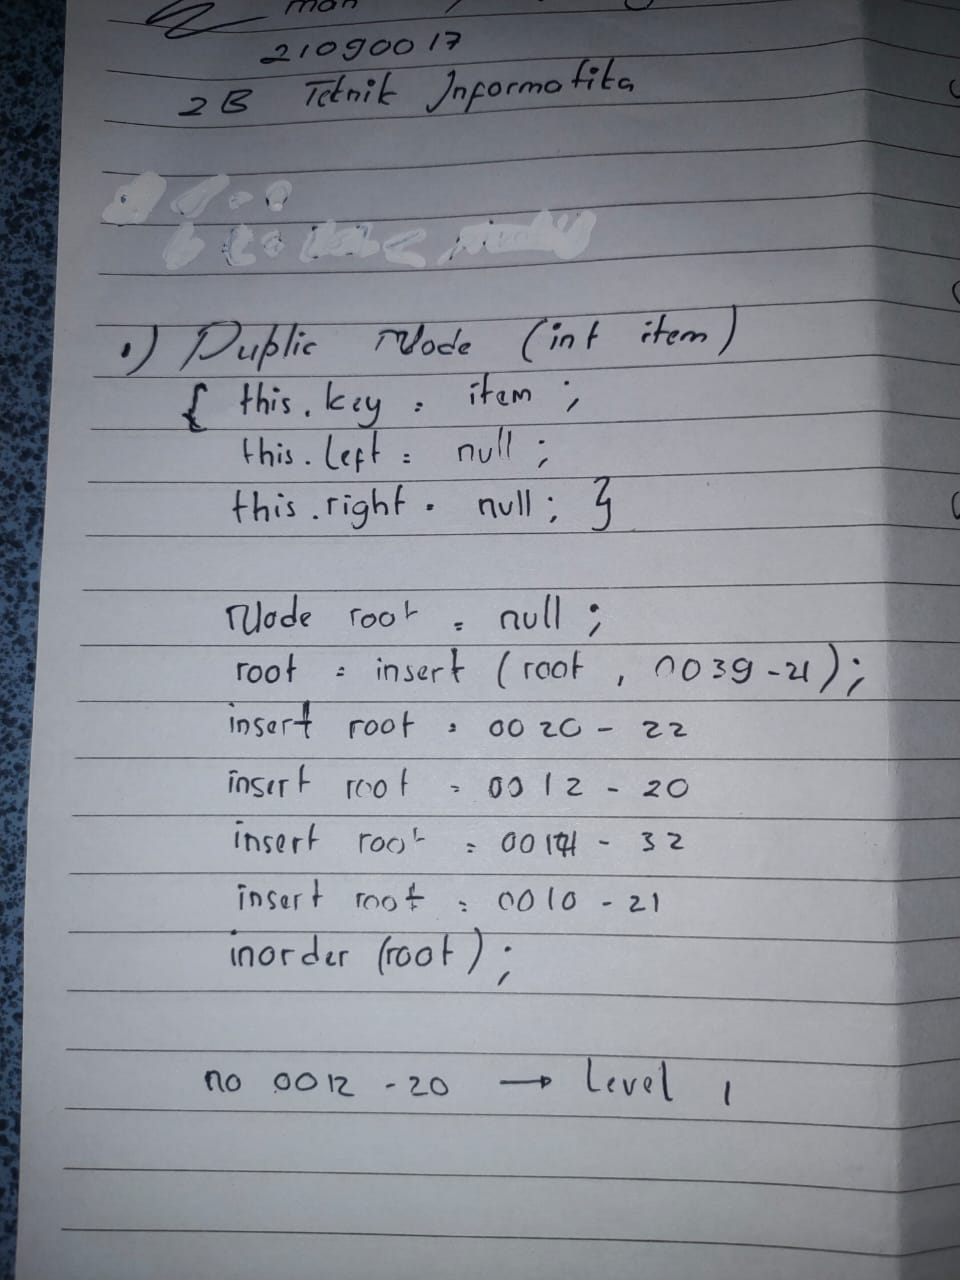 21090017
2B Teknik Informatika
1) Public Node (int item)
{ this.key = item ;
this.left = null ;
this.right = null ; }
Node root = null ;
root = insert (root , 0039-21) ;
insert root = 0020 - 22
insert root = 0012 - 20
insert root = 0014 - 32
insert root = 0010 - 21
inorder (root) ;
no 0012 - 20 → Level 1